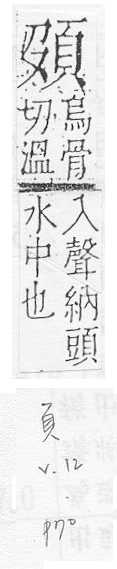 烏骨
切溫
入聲納頭
水中也
頁
v. 12